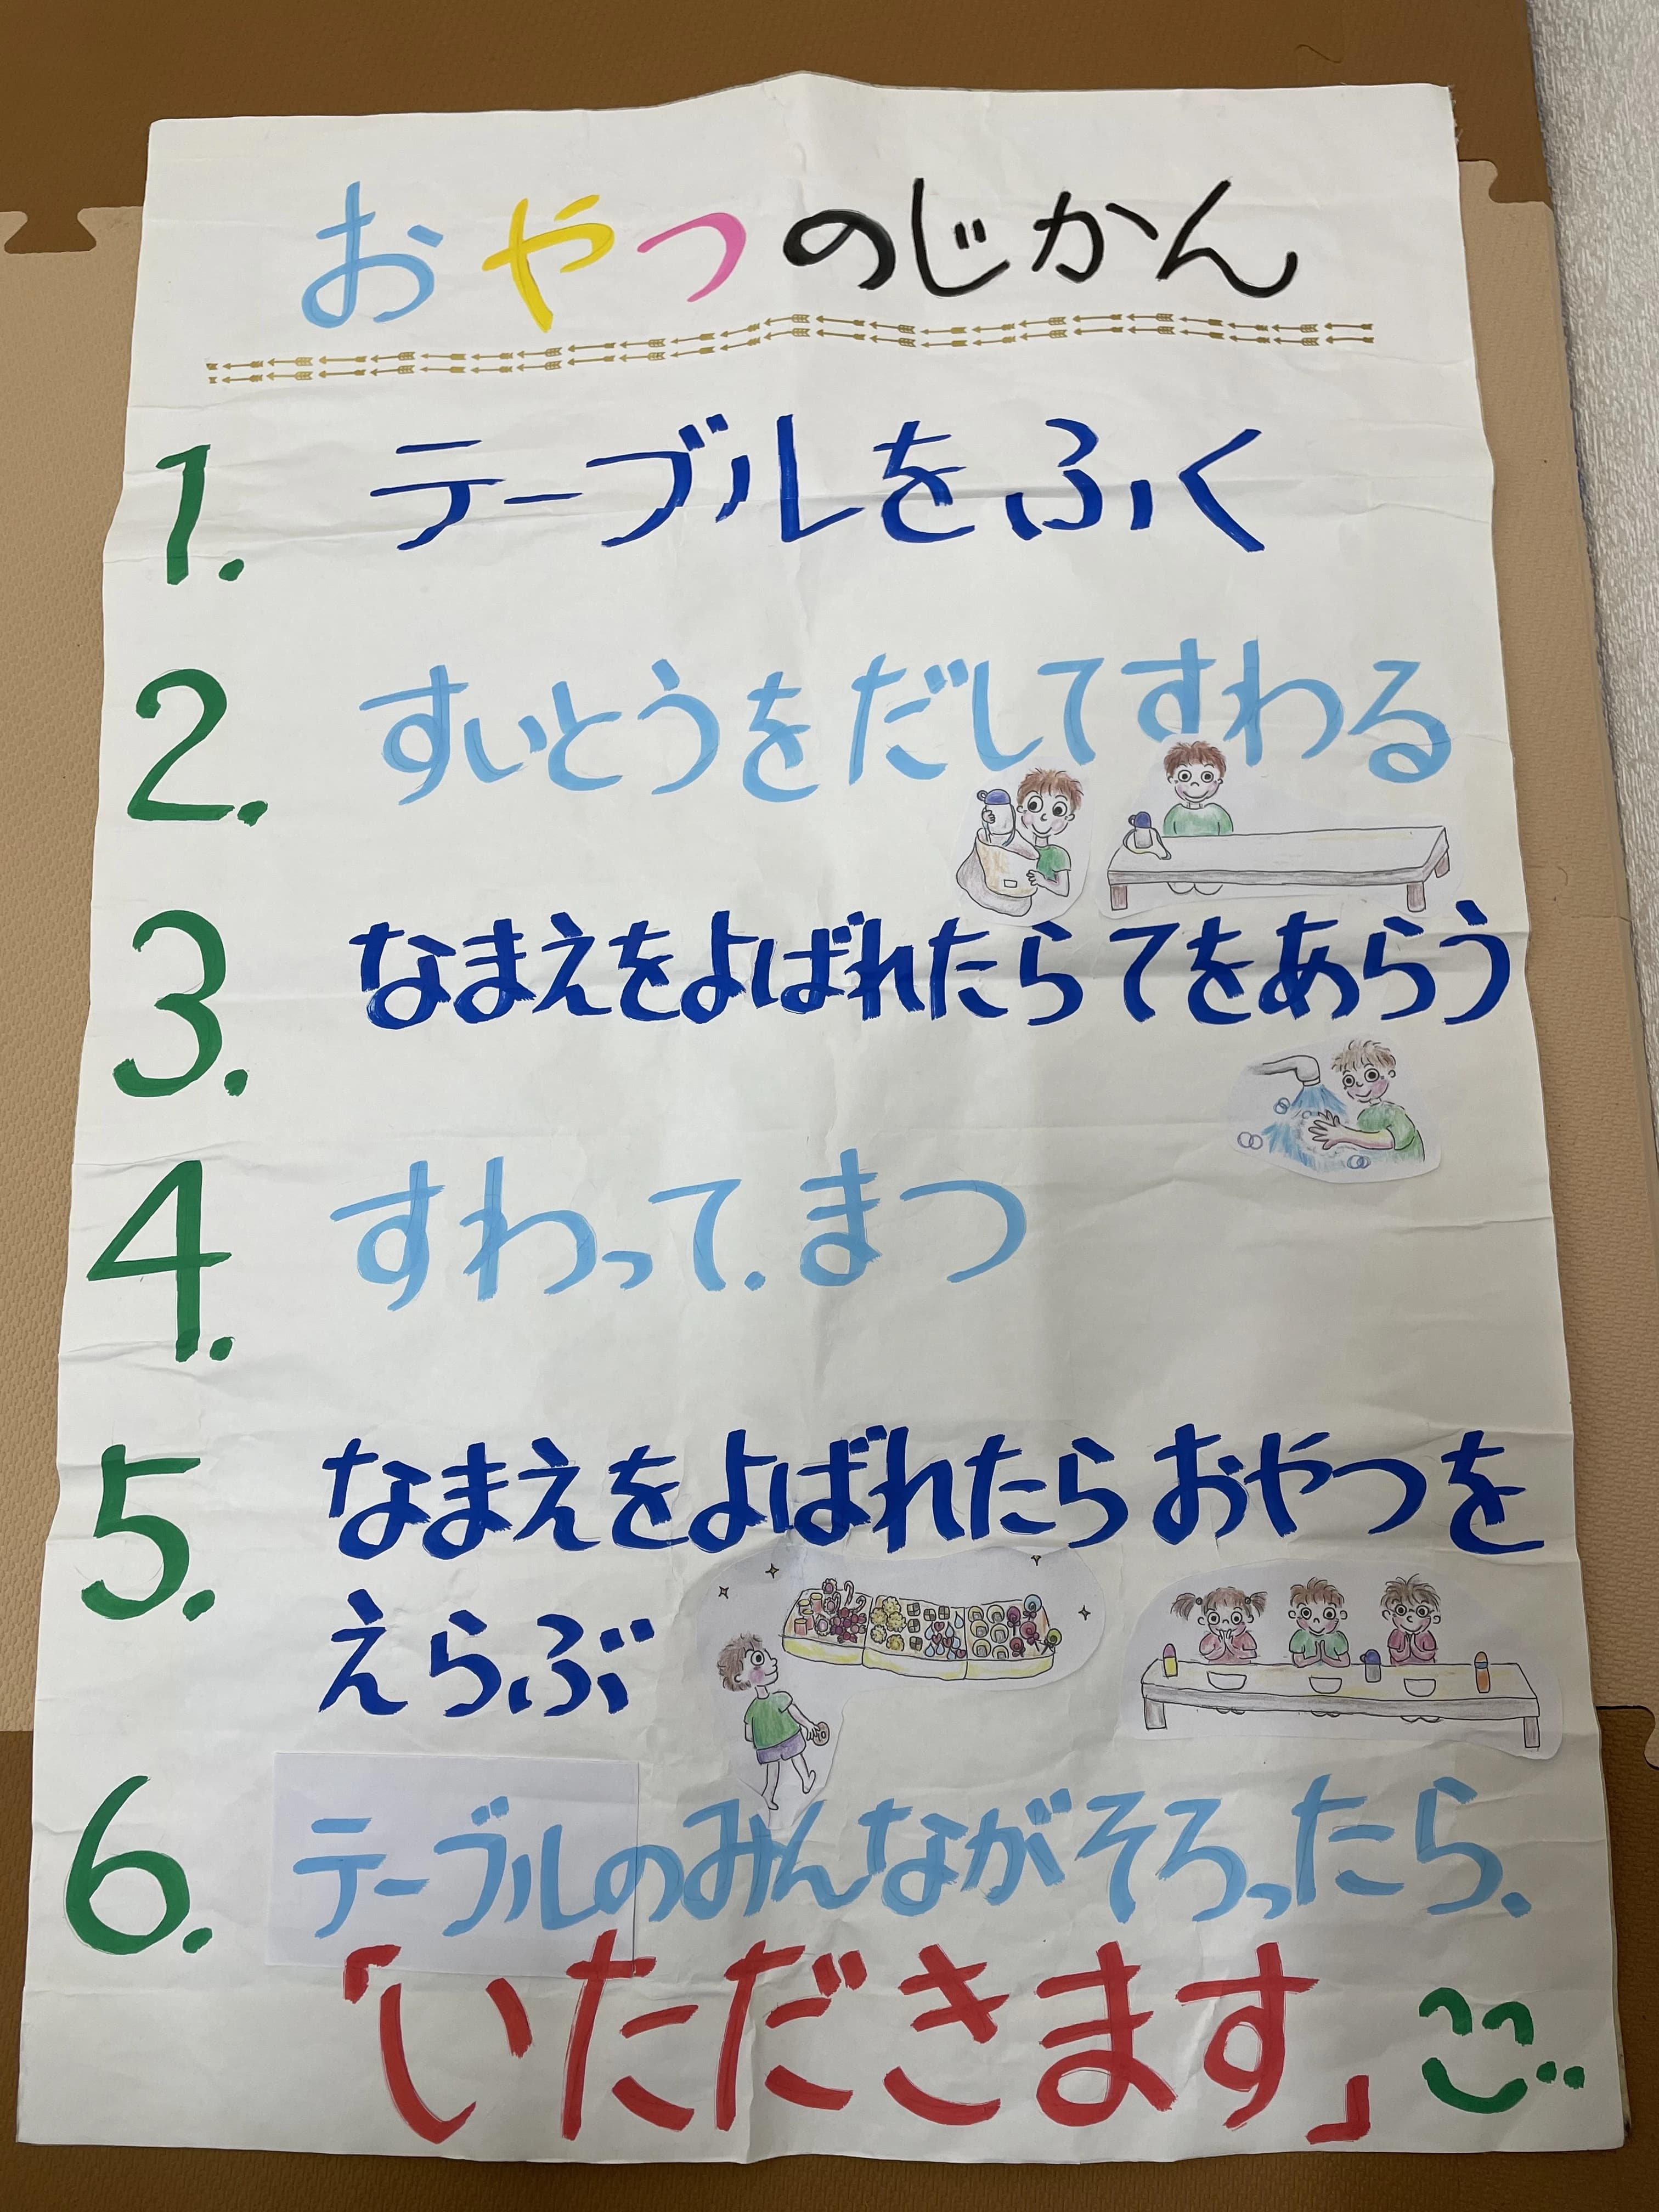 おやつのじかん
1. テーブルをふく
2. すいとうをだしてすわる
3. なまえをよばれたらてをあらう
4. すわって.まつ
5. なまえをよばれたらおやつを
えらぶ
6. テーブルのみんながそろったら.
「いただきます」